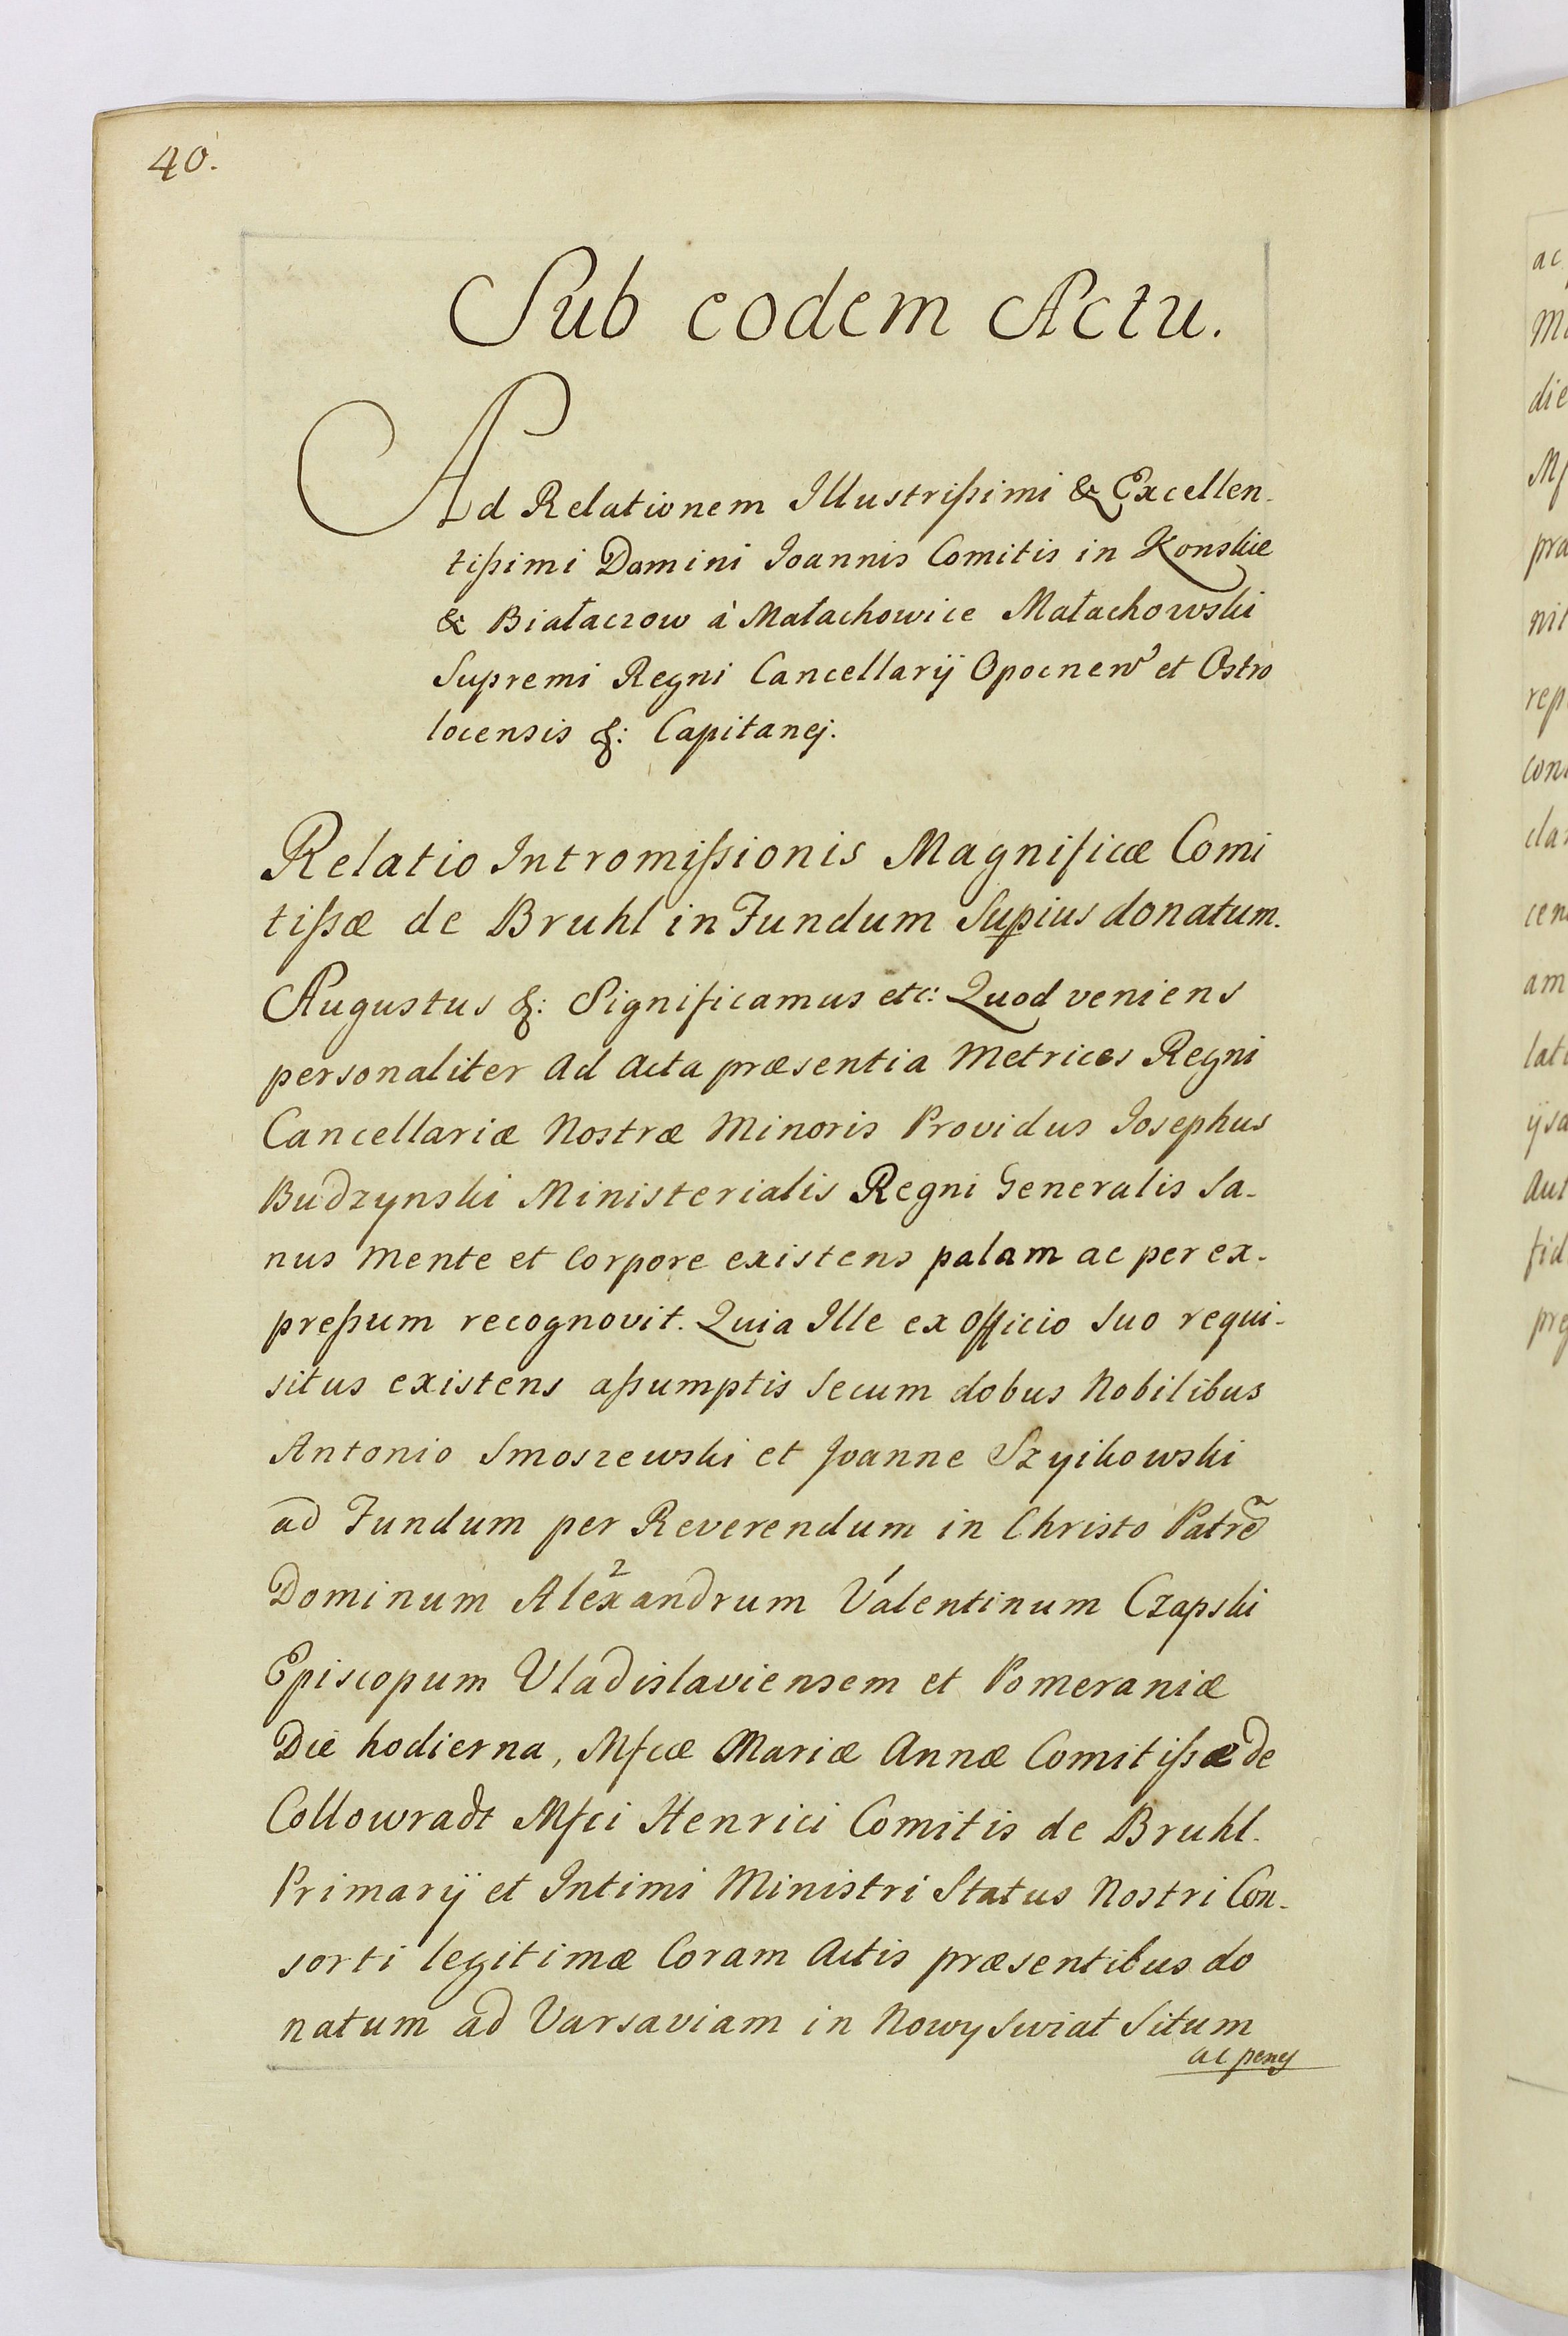 40.
Sub eodem Actu.
Ad Relationem Illustrißimi & Excellen-
tißimi Domini Joannis Comitis in Konskie
& Białaczow à Małachowice Małachowski
Supremi Regni Cancellarij Opocnen' et Ostro
locensis &: Capitanej.
Relatio Intromißsionis Magnificæ Comi
tißæ de Bruhl in Fundum Supius donatum.
Augustus &: Significamus etc: Quod veniens
personaliter ad acta præsentia Metrices Regni
Cancellariæ Nostræ Minoris Providus Josephus
Budzynski Ministerialis Regni Generalis Sa-
nus Mente et Corpore existens palam ac per ex-
preßum recognovit. Quia Ille ex Officio Suo requi-
situs existens aßumptis Secum dobus Nobilibus
Antonio Smoszewski et Joanne Szyikowski
ad Fundum per Reverendum in Christo Patrẽ
Dominum Alexandrum 2 Valentinum 1 Czapski
Episcopum Vladislaviensem et Pomeraniæ
Die hodierna, Mfcæ Mariæ Annæ Comitißæ de
Collowradt Mfci Henrici Comitis de Bruhl.
Primarij et Intimi Ministri Status Nostri Con-
sorti legitimæ Coram Actis præsentibus do
natum ad Varsaviam in Nowy Swiat Situm
ac penes